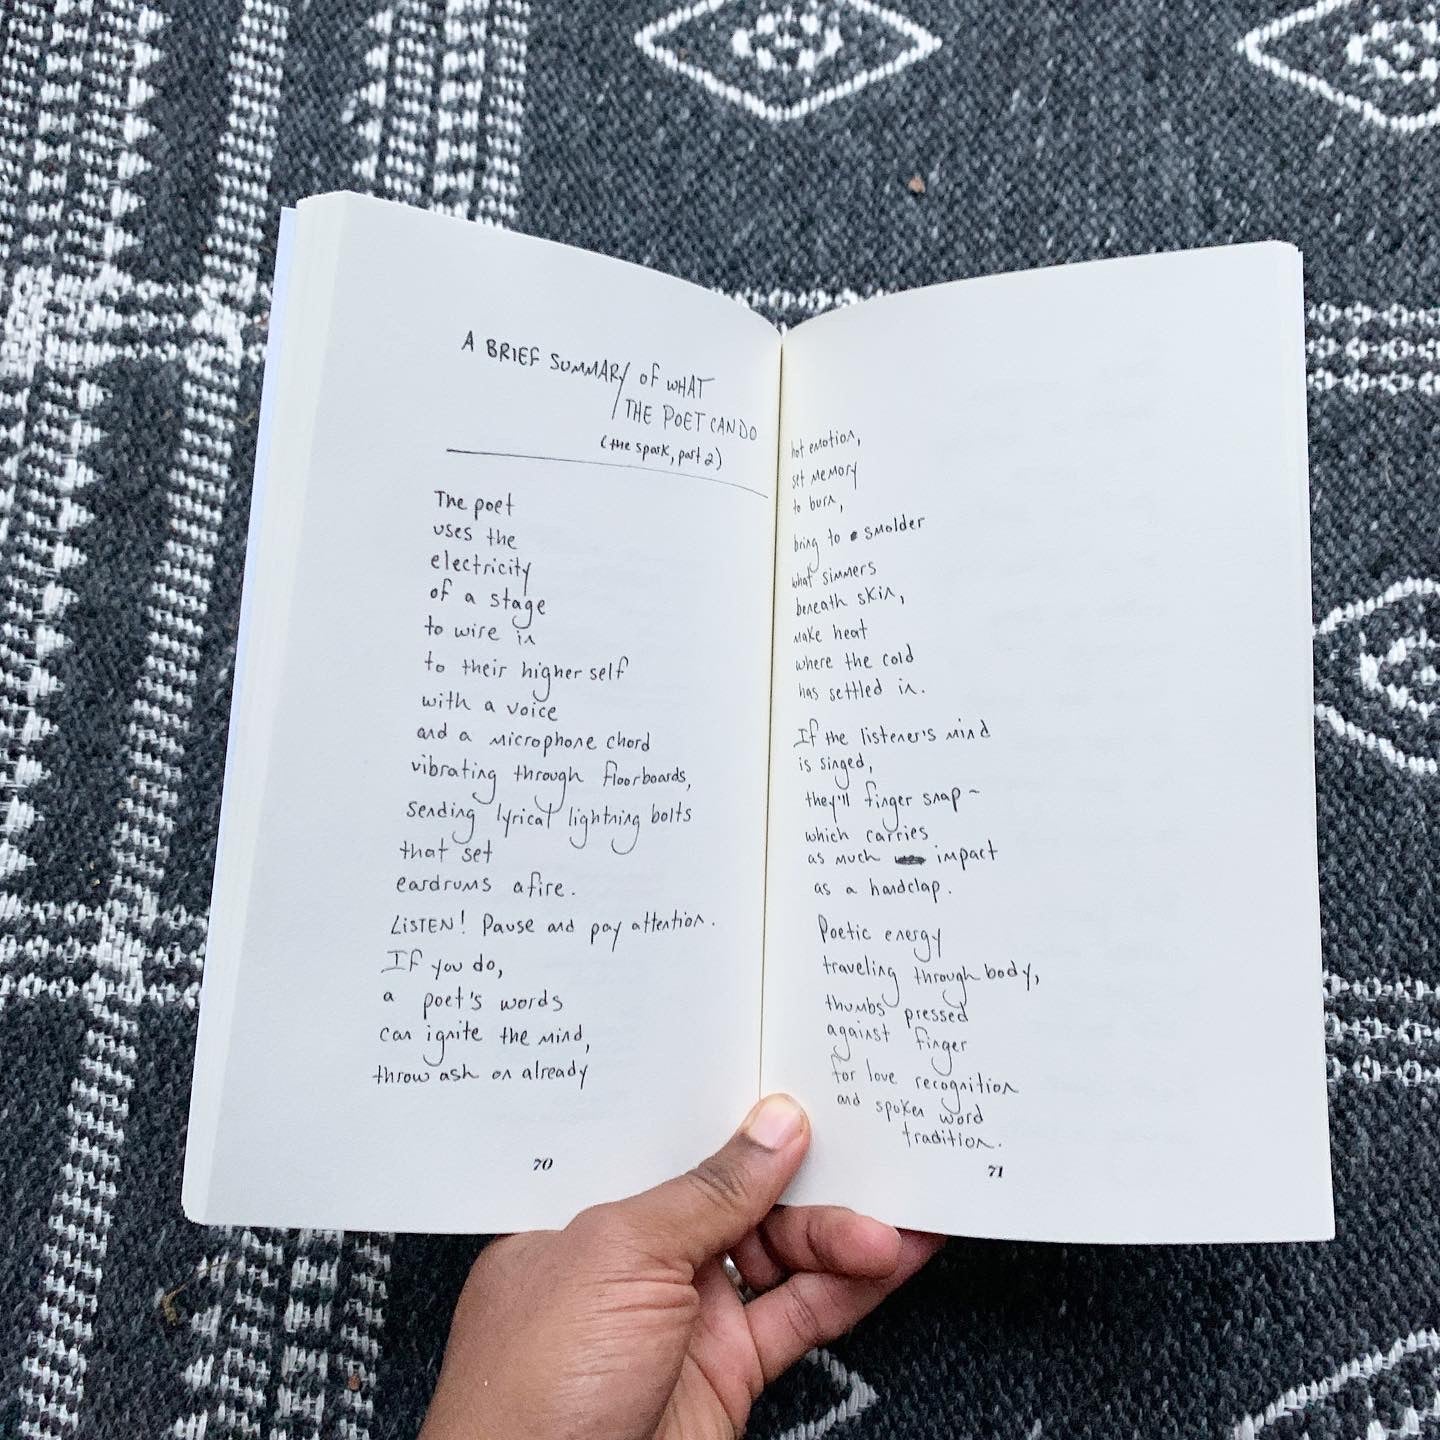 A BRIEF SUMMARY OF WHAT
THE POET CAN DO
(the spark, part 2)
The poet
uses the
electricity
of a stage
to wire in
to their higher self
with a voice
and a microphone chord
vibrating through floorboards,
sending lyrical lightning bolts
that set
eardrums afire.
LISTEN! Pause and pay attention.
If you do,
a poet's words
can ignite the mind,
throw ash on already
70
hot emotion,
set memory
to burn,
bring to smolder
what simmers
beneath skin,
make heat
where the cold
has settled in.
If the listener's mind
is singed,
they'll finger snap ~
which carries
as much impact
as a handclap.
Poetic energy
traveling through body,
thumbs pressed
against finger
for love recognition
and spoken word
tradition.
71